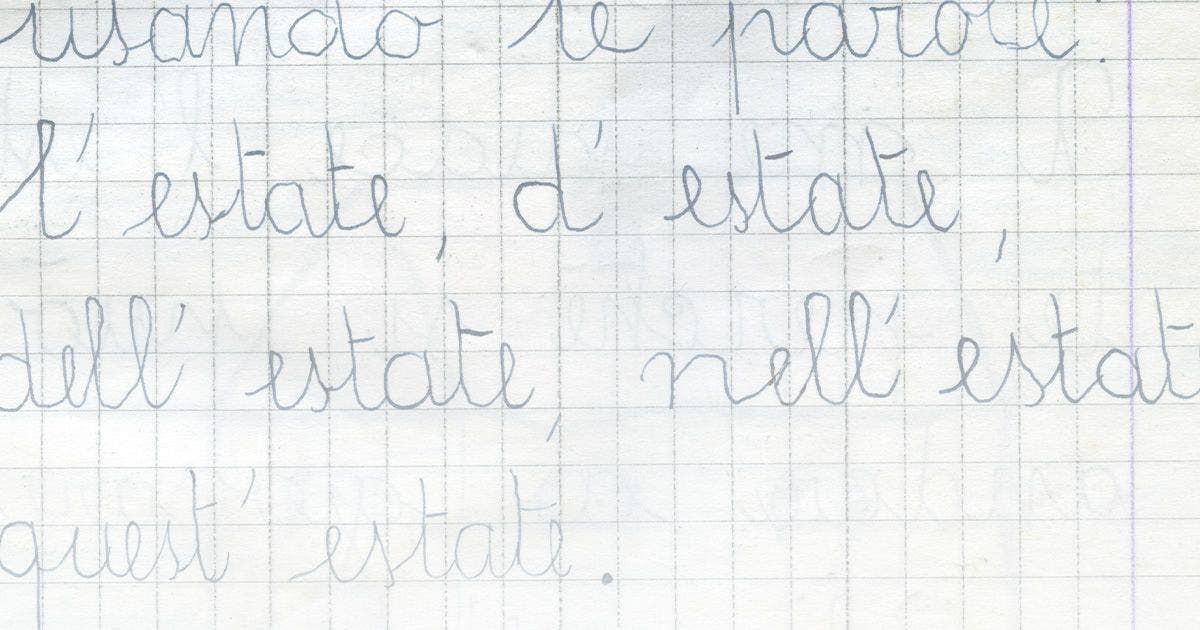 usando le parole:
l' estate, d' estate,
dell' estate, nell' estat
quest' estate.